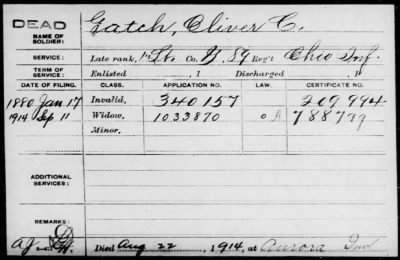 DEAD
NAME OF SOLDIER: Gatch, Oliver C.
SERVICE: Late rank, 1st Lt. Co. G, 89 Reg't Ohio Inf.
TERM OF SERVICE: Enlisted , 1 Discharged , 1
DATE OF FILING. CLASS. APPLICATION NO. LAW. CERTIFICATE NO.
1880 Jan 17 Invalid, 340157 209994
1914 Sep 11 Widow, 1033870 O A 788799
Minor,
ADDITIONAL SERVICES:
REMARKS:
Died Aug 22, 1914, at Aurora Ind